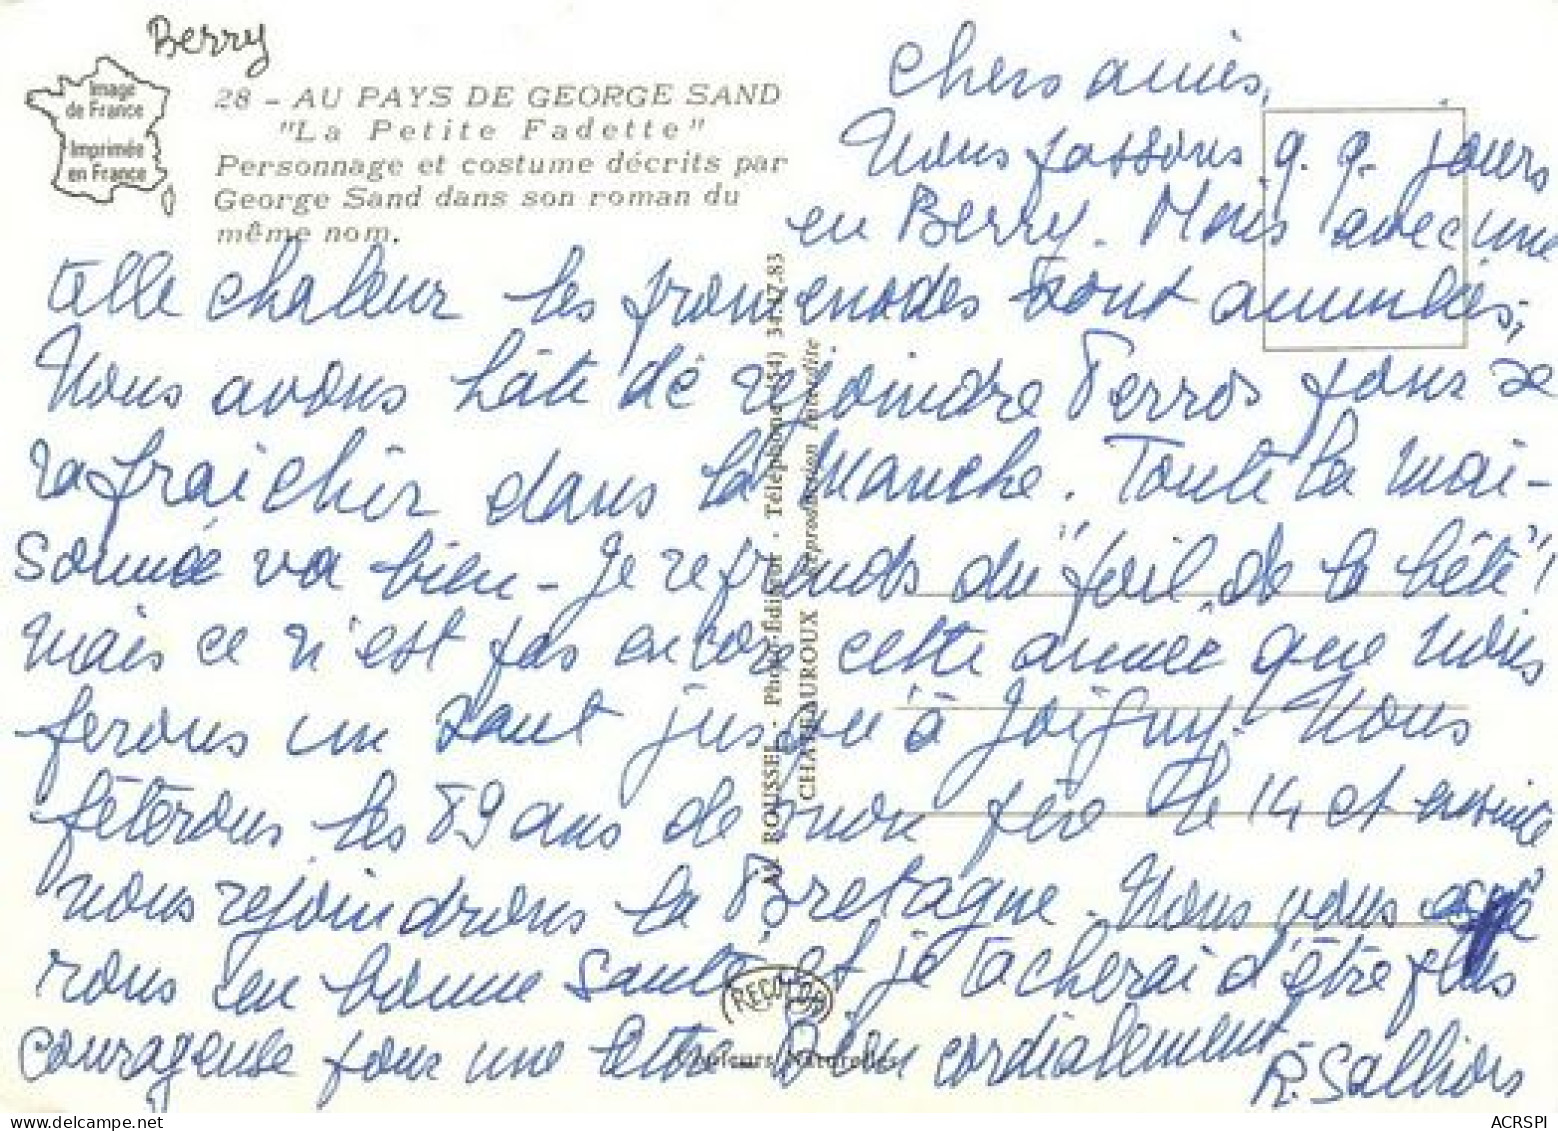 Berry
Image
de France
Imprimée
en France
28 - AU PAYS DE GEORGE SAND
"La Petite Fadette"
Personnage et costume décrits par
George Sand dans son roman du
même nom.
Chers amis,
Nous passons q.q. jours
en Berry. Mais avec une
telle chaleur les promenades sont annulées,
Nous avons hâte de rejoindre Perros pour se
rafraichir dans la Manche. Toute la mai-
sonnée va bien - Je reprends du "poil de la bête"!
mais ce n'est pas encore cette année que nous
ferons un saut jusqu'à Joigny. Nous
fêterons les 89 ans de mon père le 14 et ensuite
nous rejoindrons la Bretagne. Nous vous espé
rons en bonne santé, et je tacherai d'être plus
courageuse pour une lettre. Bien cordialement
R. Salliors
ROUSSEL - Photo-Éditeur - Téléphone (54) 34.47.83
CHATEAUROUX Reproduction interdite
Couleurs Naturelles
ACRSPI